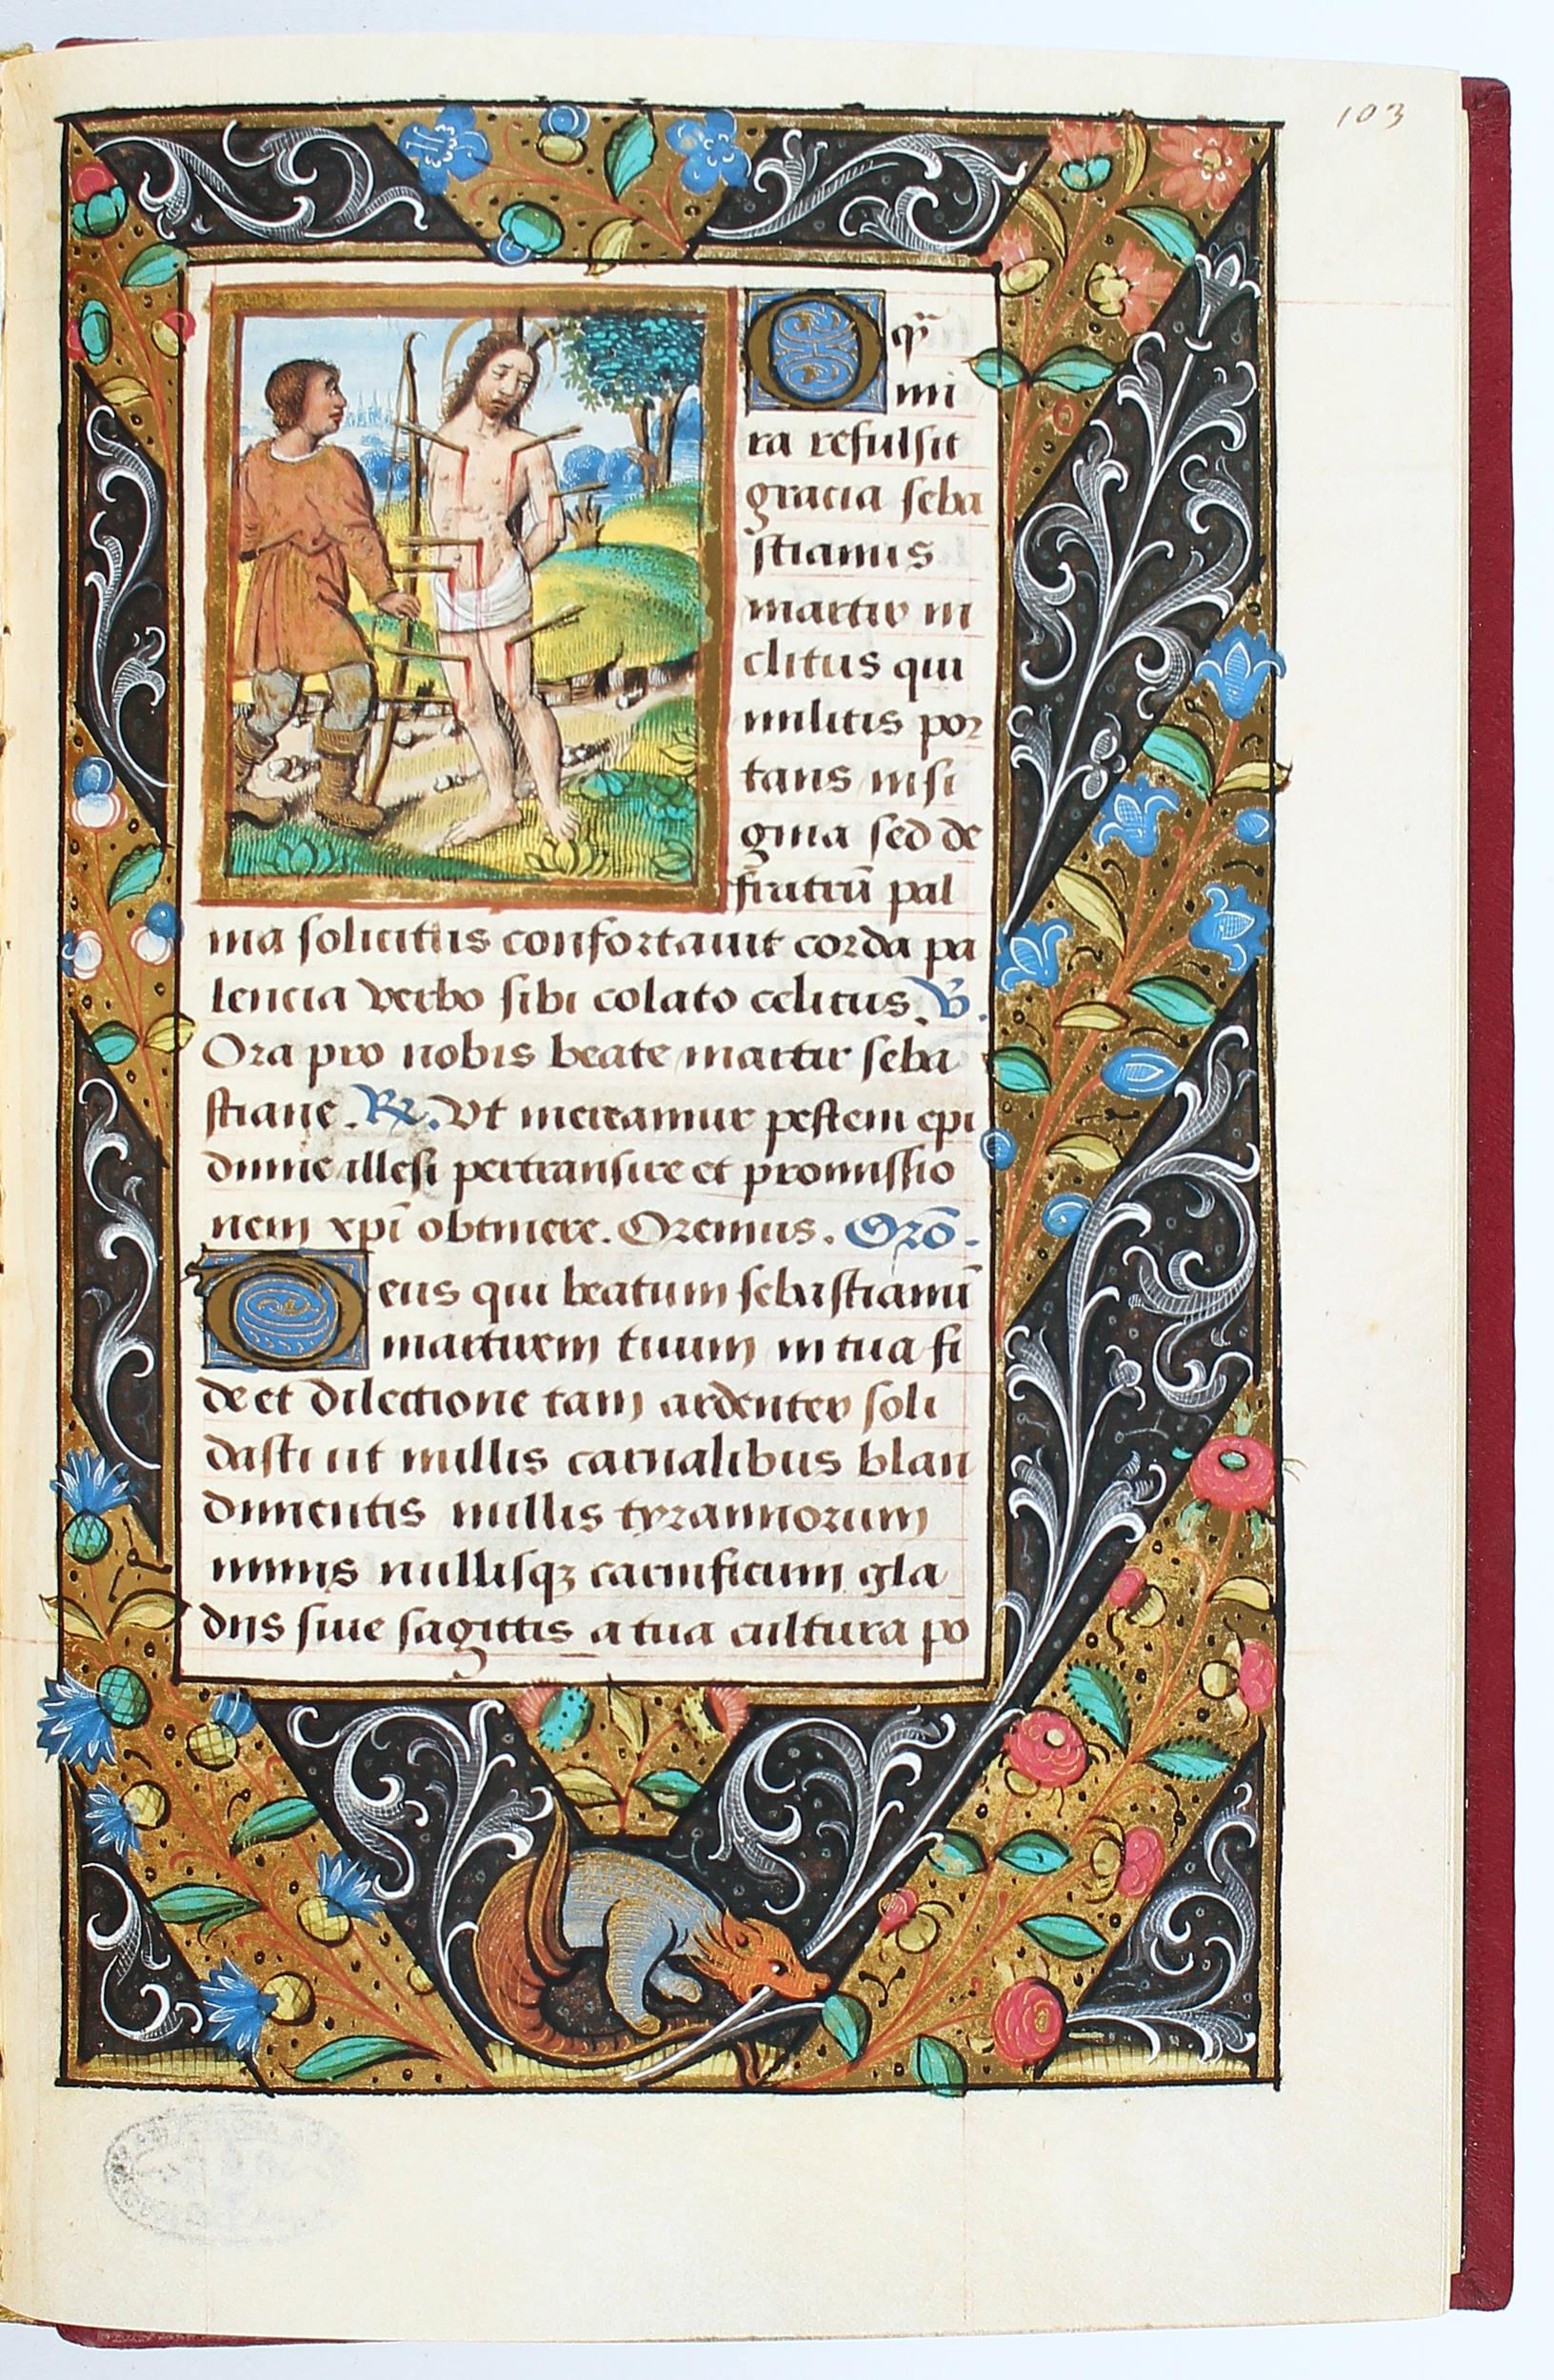 103
O q̄ȝ
mi
ra refulsit
gracia seba
stianus
martir in
clitus qui
militis por
tans insi
gnia sed de
fratrū pal
ma solicitus confortauit corda pa
lencia verbo sibi colato celitus. V̄.
Ora pro nobis beate martir seba
stiane. R̄. Vt mereamur pestem epi
dimie illesi pertransire et promissio
nem xp̄i obtinere. Oremus. Orō.
Deus qui beatum sebastianū
martirem tuum in tua fi
de et dilectione tam ardenter soli
dasti ut nullis carnalibus blan
dimentis nullis tyrannorum
minis nullisqȝ carnificum gla
diis siue sagittis a tua cultura po